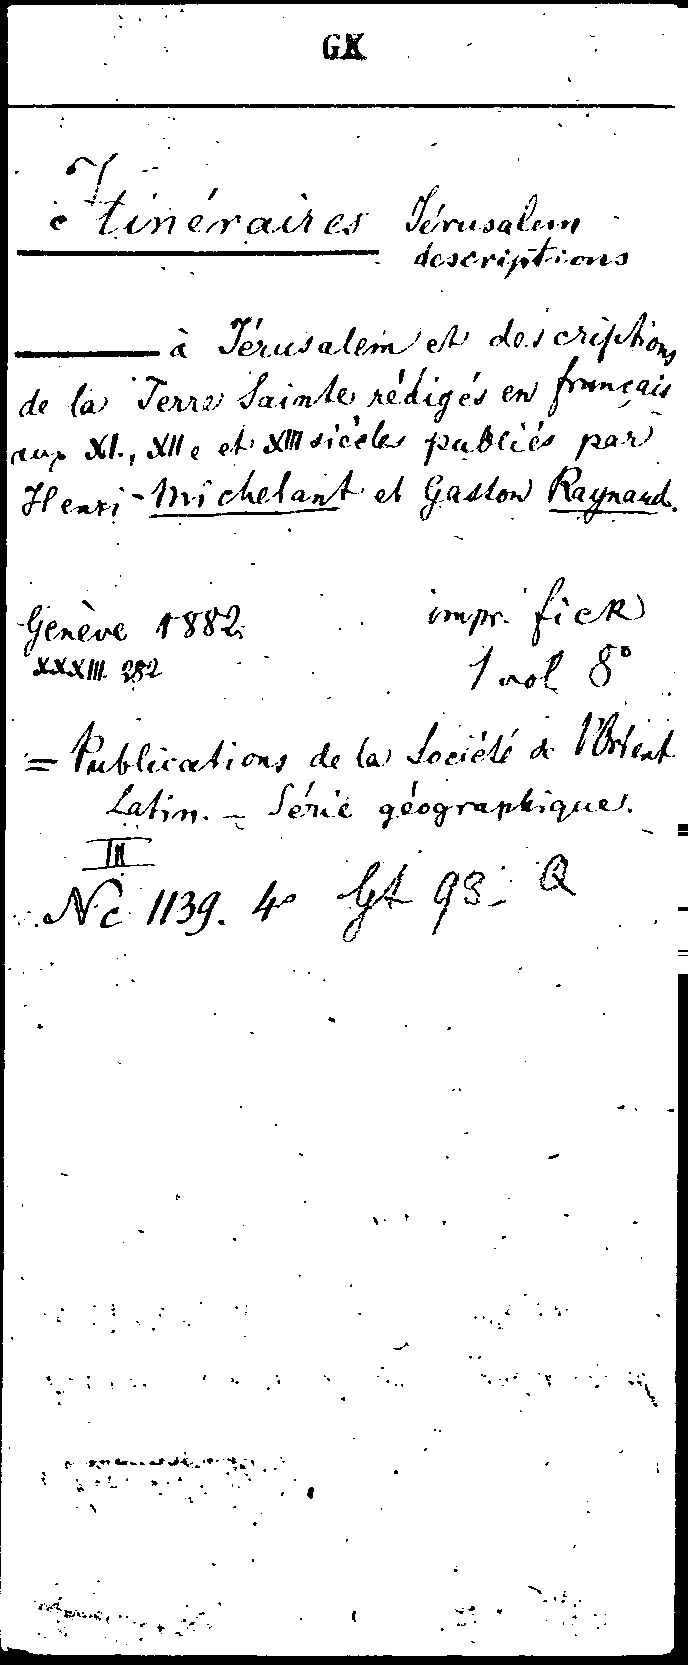 GK
Itinéraires Jérusalem
descriptions
——— à Jérusalem et descriptions
de la Terre Sainte rédigés en français
aux XI., XIIe et XIII siècles publiés par
Henri-Michelant et Gaston Raynaud.
Genève 1882. impr. fick
XXXIII. 282 1 vol 8°
= Publications de la Société de l'Orient
Latin. = Série géographique.
III
Nc 1139. 4° Gt 93- Q